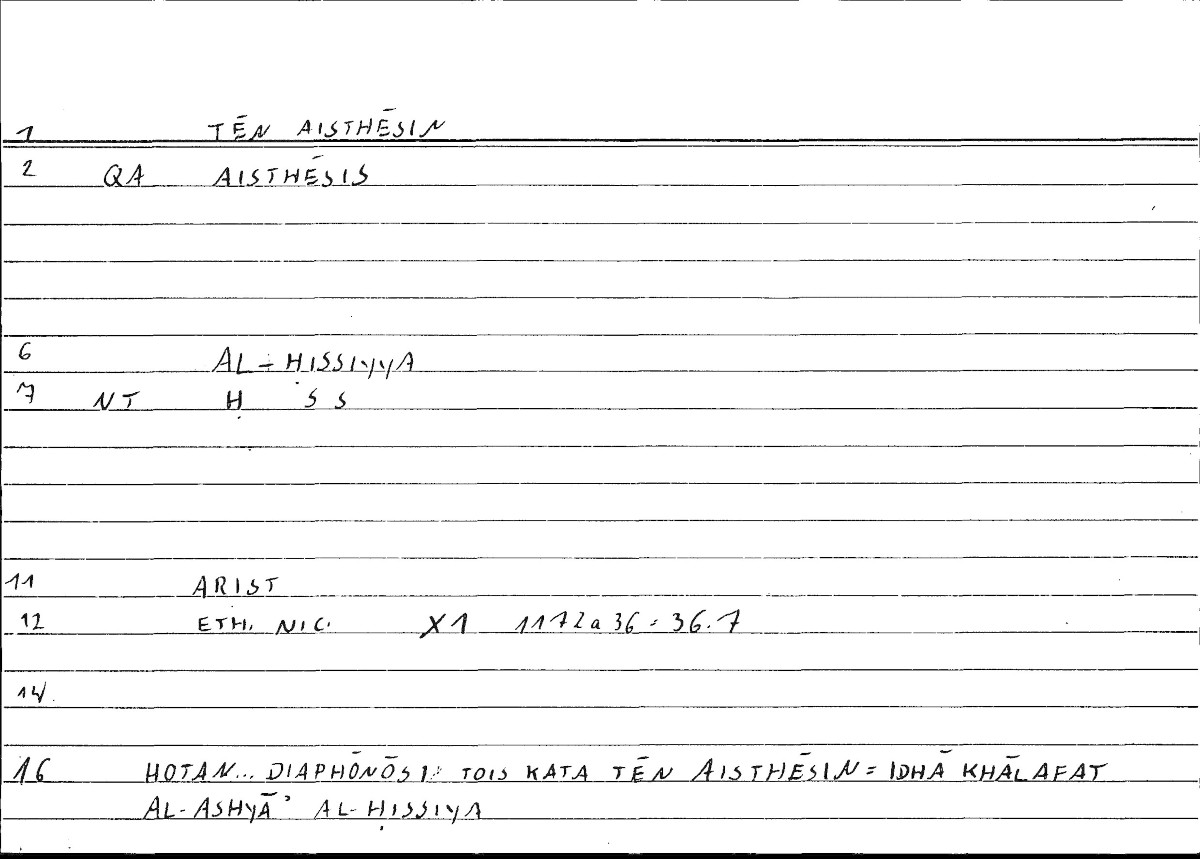 1 TĒN AISTHĒSIN
2 QA AISTHĒSIS
6 AL-ḤISSIYYA
7 NT Ḥ S S
11 ARIST
12 ETH. NIC. X1 1172a36 = 36.7
14
16 HOTAN... DIAPHŌNŌSI TOIS KATA TĒN AISTHĒSIN = IDHĀ KHĀLAFAT
AL-ASHYĀ' AL-ḤISSIYA